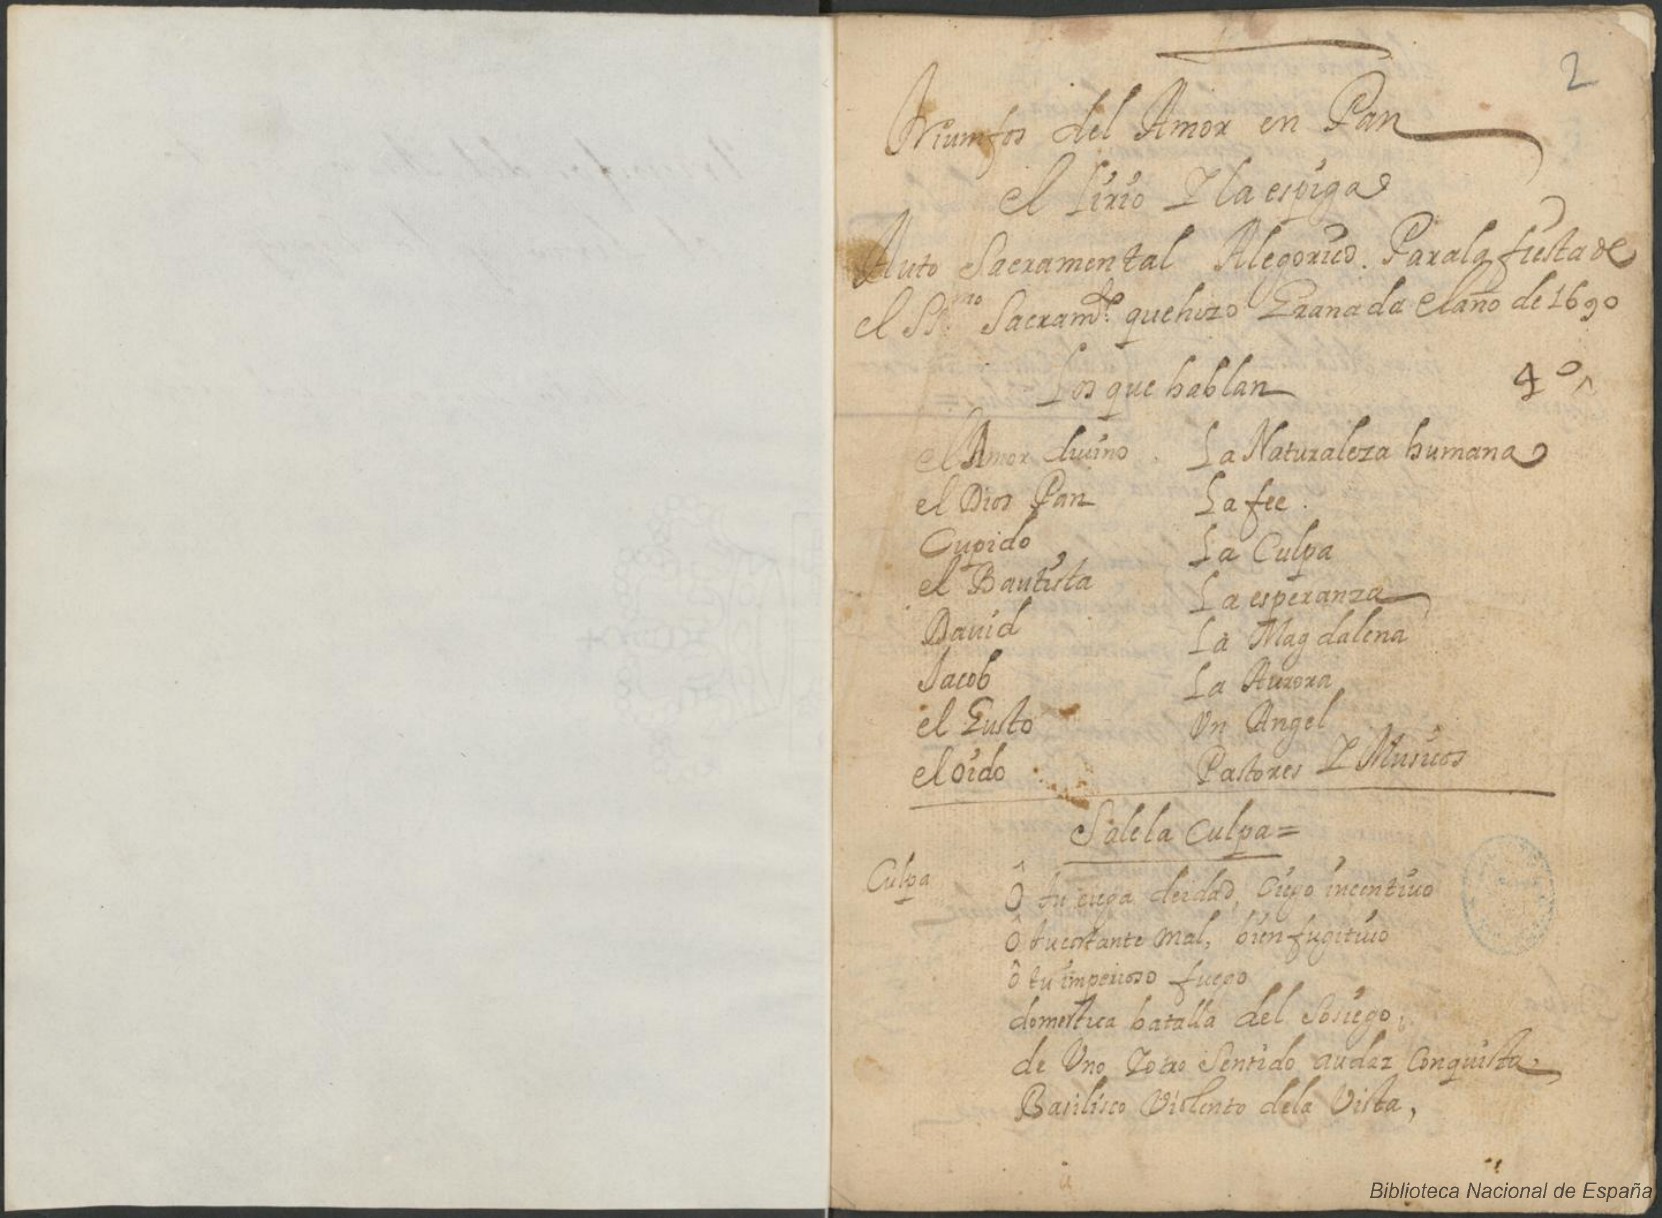 2
Triumfos del Amor en Pan
el lirio Y la espiga
Auto Sacramental Alegorico. Para la fiesta de
el SS.mo Sacram.to que hizo Granada el año de 1690
Los que hablan
4º
el Amor diuino . La Naturaleza humana
el Dios Pan La fee .
Cupido La Culpa
el Bautista La esperanza
Dauid La Magdalena
Jacob La Aurora
el Gusto Vn Angel
el oido Pastores Y Musicos
Sale la Culpa =
Culpa Ô tu ciega deidad, Cuyo incentiuo
Ô tu constante mal, bien fugitiuo
ô tu imperioso fuego
domestica batalla del Sosiego,
de Vno Y otro Sentido audaz Conquista,
Basilisco Violento de la Vista,
Biblioteca Nacional de España